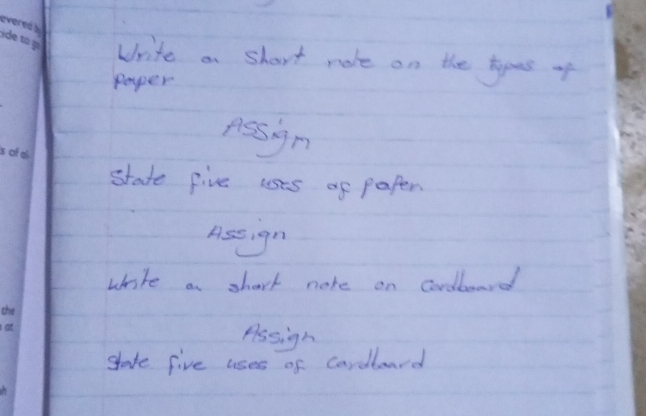 evered
ide to
Write a short note on the types of
paper
Assign
State five uses of paper.
s of
Assign
Write a short note on cardboard
the
Assign
State five uses of cardboard